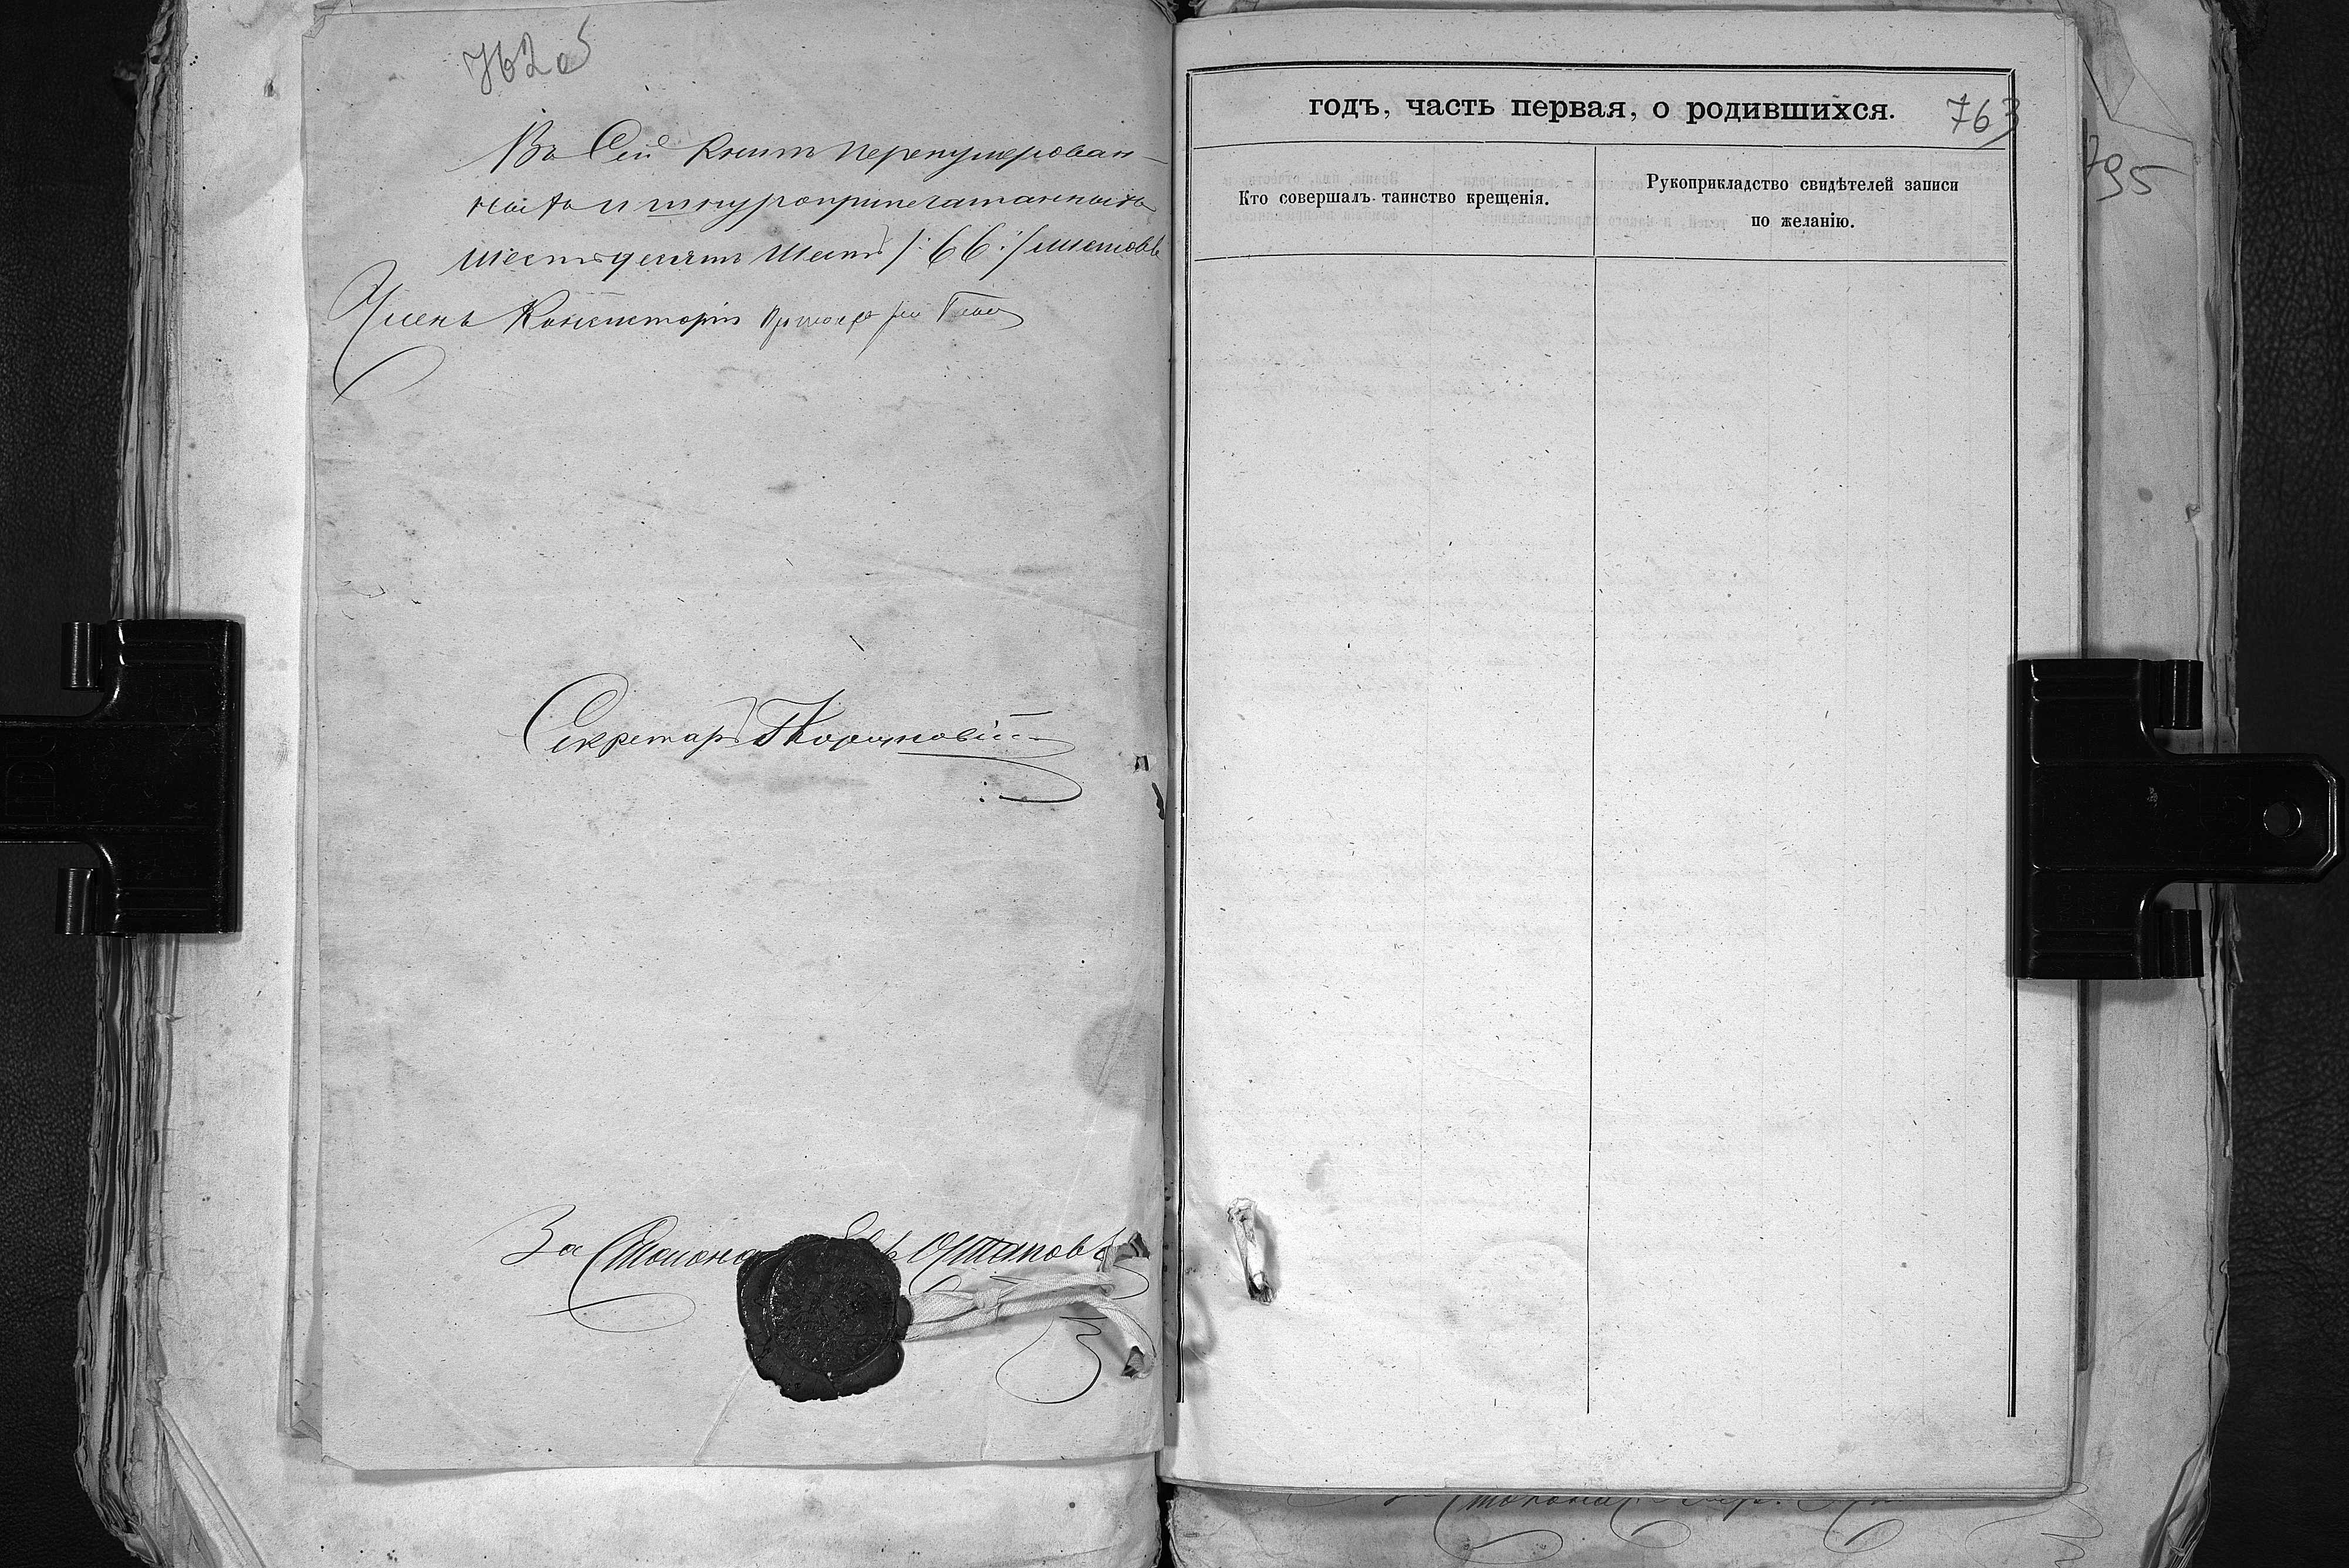 762об
Въ Сей книгѣ перенумерован-
ныхъ и шнуроприпечатанныхъ
шестьдесятъ шесть /:66:/ листовъ
Членъ Консисторіи
Секретарь
За Столонач Остаповъ
годъ, часть первая, о родившихся.
763
795
Кто совершалъ таинство крещенія.
Рукоприкладство свидѣтелей записи
по желанію.